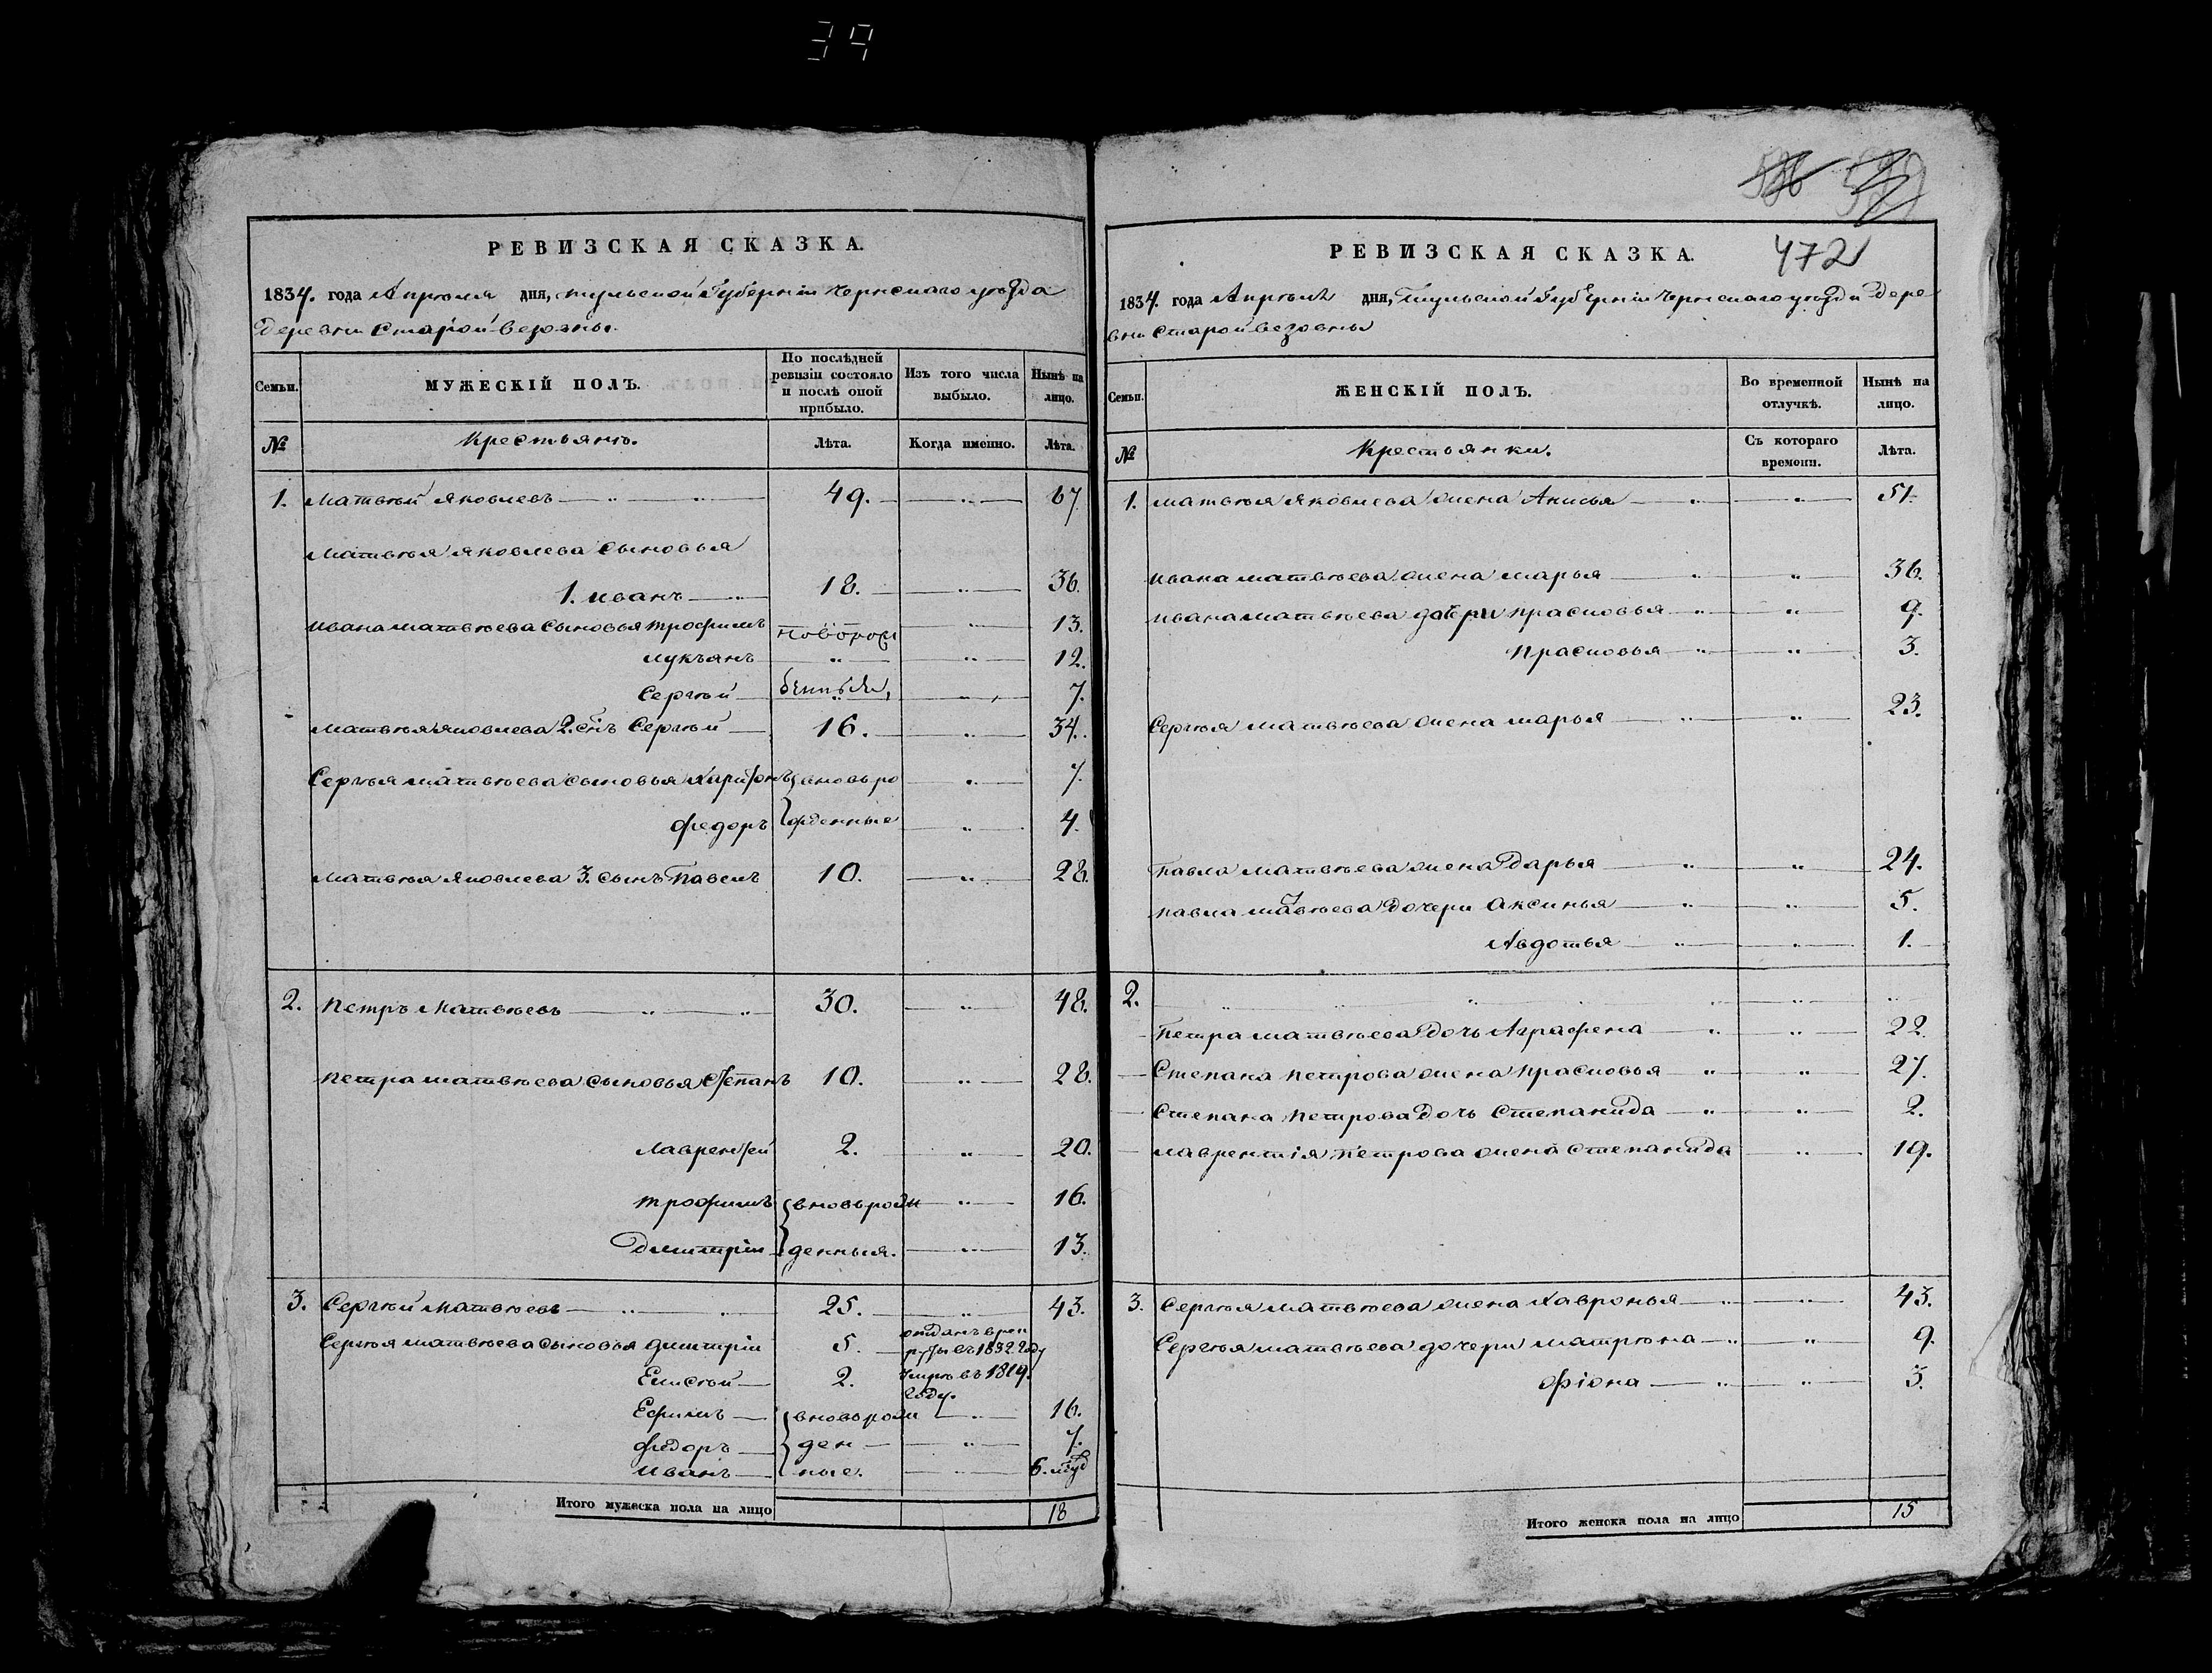 34
РЕВИЗСКАЯ СКАЗКА.
1834. года Апреля дня, тульской Губерніи чернскаго уѣзда
деревни Старой
Семьи. МУЖЕСКІЙ ПОЛЪ. По послѣдней ревизіи состояло и послѣ оной прибыло. Изъ того числа выбыло. Нынѣ на лицо.
№ Крестьянъ. Лѣта. Когда именно. Лѣта.
1. матвѣй яковлевъ 49. 67.
матвѣя яковлева сыновья
1. иванъ 18. 36.
ивана матвѣева сыновья трофимъ 13.
лукъянъ 12.
Сергѣй 7.
матвѣя яковлева 2. сінъ Сергѣй 16. 34.
Сергѣя матвѣева сыновья Харитонъ вновь ро 7.
федоръ жденные 4.
матвѣя яковлева 3. сынъ павелъ 10. 28.
2. петръ матвѣевъ 30. 48.
петра матвѣева сыновья степанъ 10. 28.
лаврентей 2. 20.
трофимъ вновьрож 16.
Дмитріи денныя. 13.
3. Сергѣй матвѣевъ 25. 43.
Сергѣя матвѣева сыновья дмитріи 5. отданъ врек руты въ 1832 году
Елисѣй 2. умре въ 1819. году.
Ефимъ вновьрож 16.
федоръ ден 7.
иванъ ные. 6.
Итого мужеска пола на лицо 18
472
РЕВИЗСКАЯ СКАЗКА.
1834. года Апреля дня, Тульской Губерніи чернскаго уѣзда Дере
вни Старой
Семьи. ЖЕНСКІЙ ПОЛЪ. Во временной отлучкѣ. Нынѣ на лицо.
№ Крестьянки. Съ котораго времени. Лѣта.
1. матвѣя яковлева жена Анисья 51.
ивана матвѣева жена марья 36.
ивана матвѣева дочери прасковья 9.
прасковья 3.
Сергѣя матвѣева жена марья 23.
павла матвѣева жена Дарья 24.
павла матвѣева дочери аксинья 5.
Авдотья 1.
2.
петра матвѣева дочь Аграфена 22
Степана петрова жена прасковья 27.
Степана петрова дочь степанида 2.
лаврентія петрова жена степанида 19.
3. Сергѣя матвѣева жена хавронья 43.
Сергѣя матвѣева дочери матрѣна 9.
фіона 3.
Итого женска пола на лицо 15